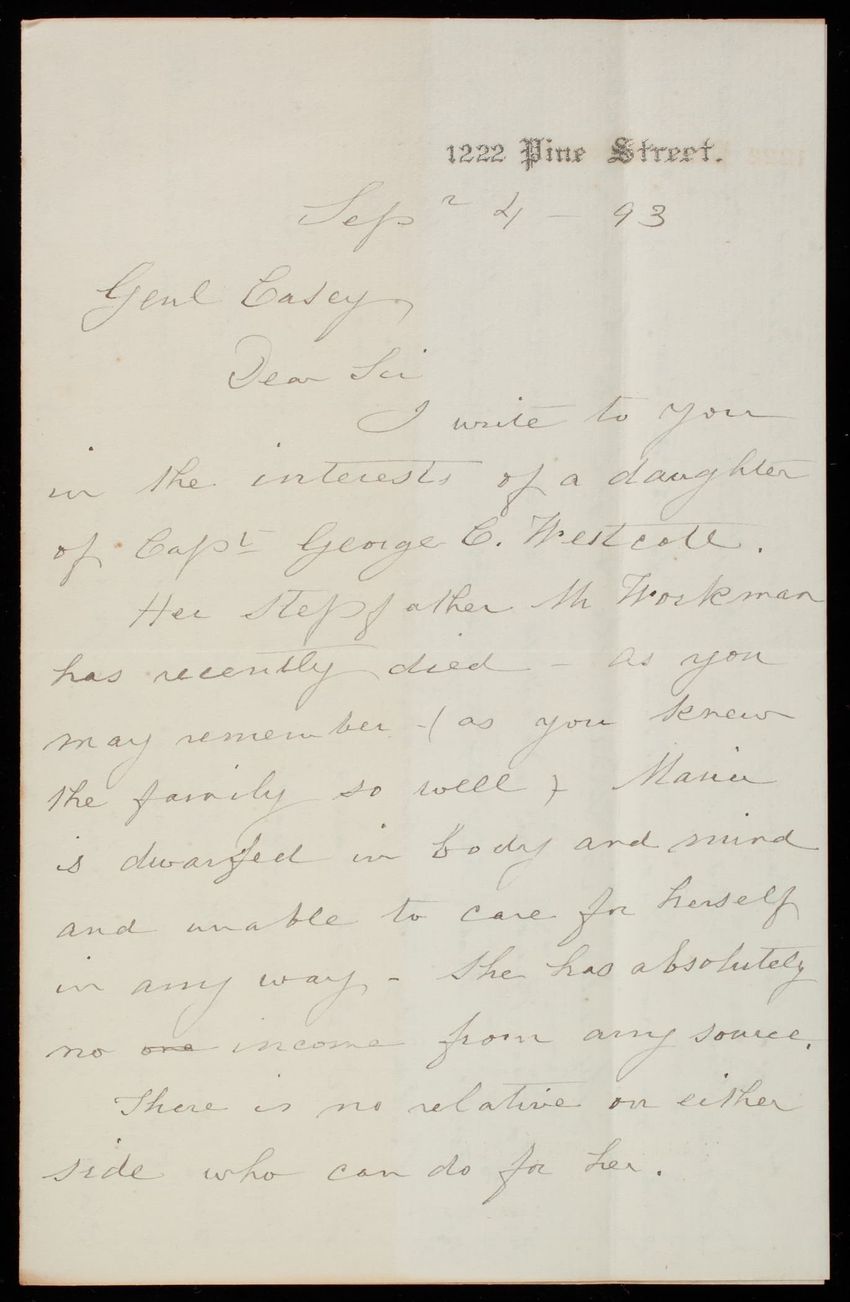 1222 Pine Street.
Sepr 4 - 93
Genl Casey
Dear Sir
I write to you
in the interests of a daughter
of Capt George C. Westcott.
Her step father Mr Workman
has recently died - as you
may remember - (as you knew
the family so well) Maria
is dwarfed in body and mind
and unable to care for herself
in any way - She has absolutely
no one income from any source.
There is no relative on either
side who can do for her.